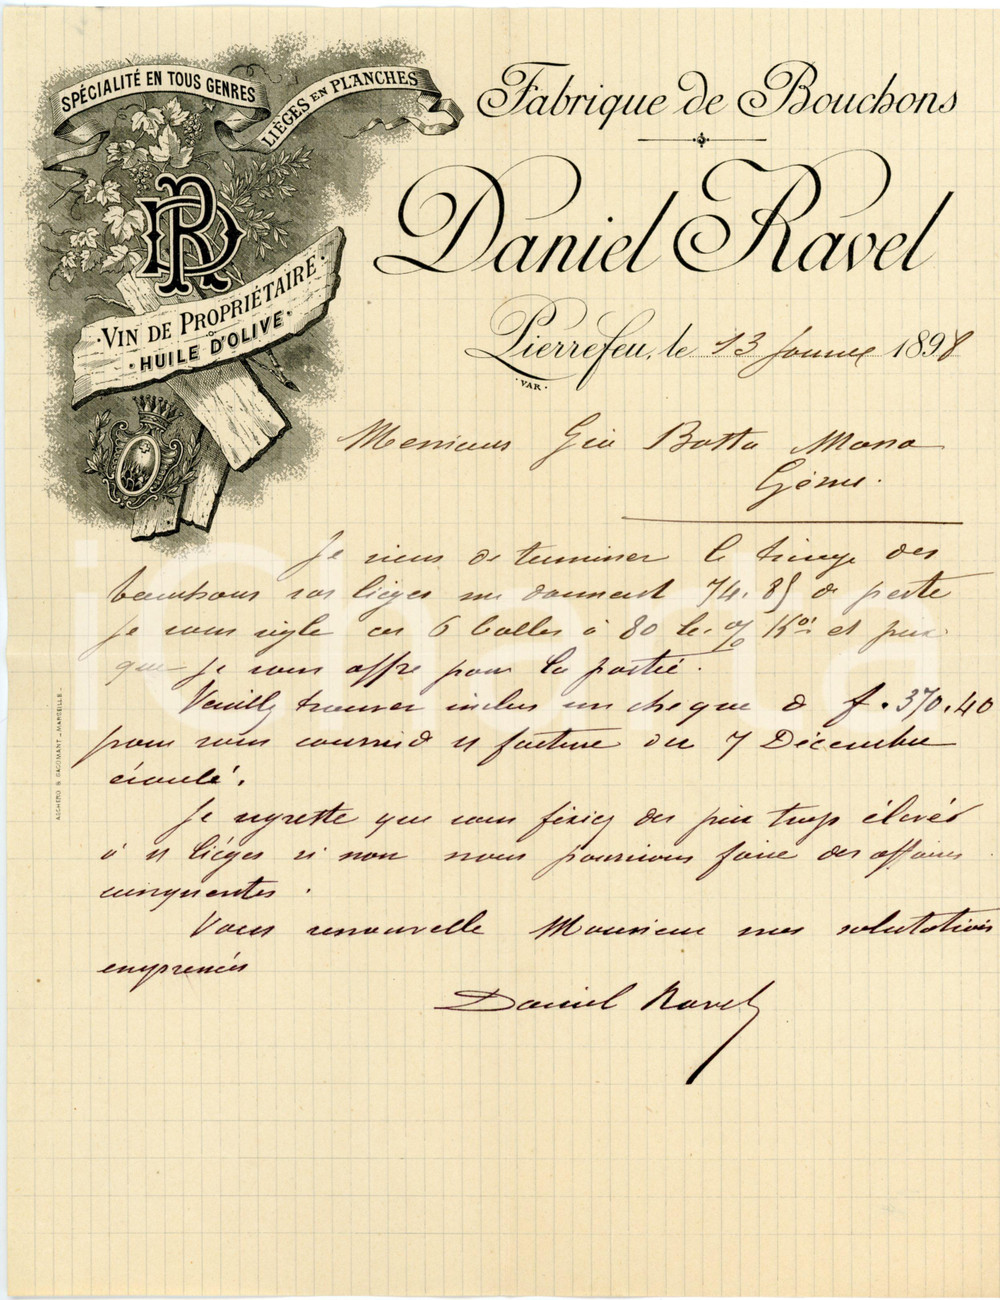 SPÉCIALITÉ EN TOUS GENRES
LIÈGES EN PLANCHES
Fabrique de Bouchons
DR
Daniel Ravel
· VIN DE PROPRIÉTAIRE ·
&
· HUILE D'OLIVE ·
Pierrefeu, le 13 Janvier 1898
· VAR ·
Messieurs Gio Batta Mona
Gênes.
Je viens de terminer le triage des
bouchons vos lièges me donnent 74.85 de perte
je vous règle ces 6 balles à 80 le % Kos et prix
que je vous offre pour la partie.
Veuillez trouver inclus un chèque de f. 370.40
pour vous couvrir de facture du 7 Décembre
écoulé.
Je regrette que vous fixiez des prix trop élevés
à lièges si non nous pourrions faire des affaires
conséquentes.
Vous renouvelle Monsieur mes salutations
empressées
Daniel Ravel
ASCHERO & GACOMANT - MARSEILLE -